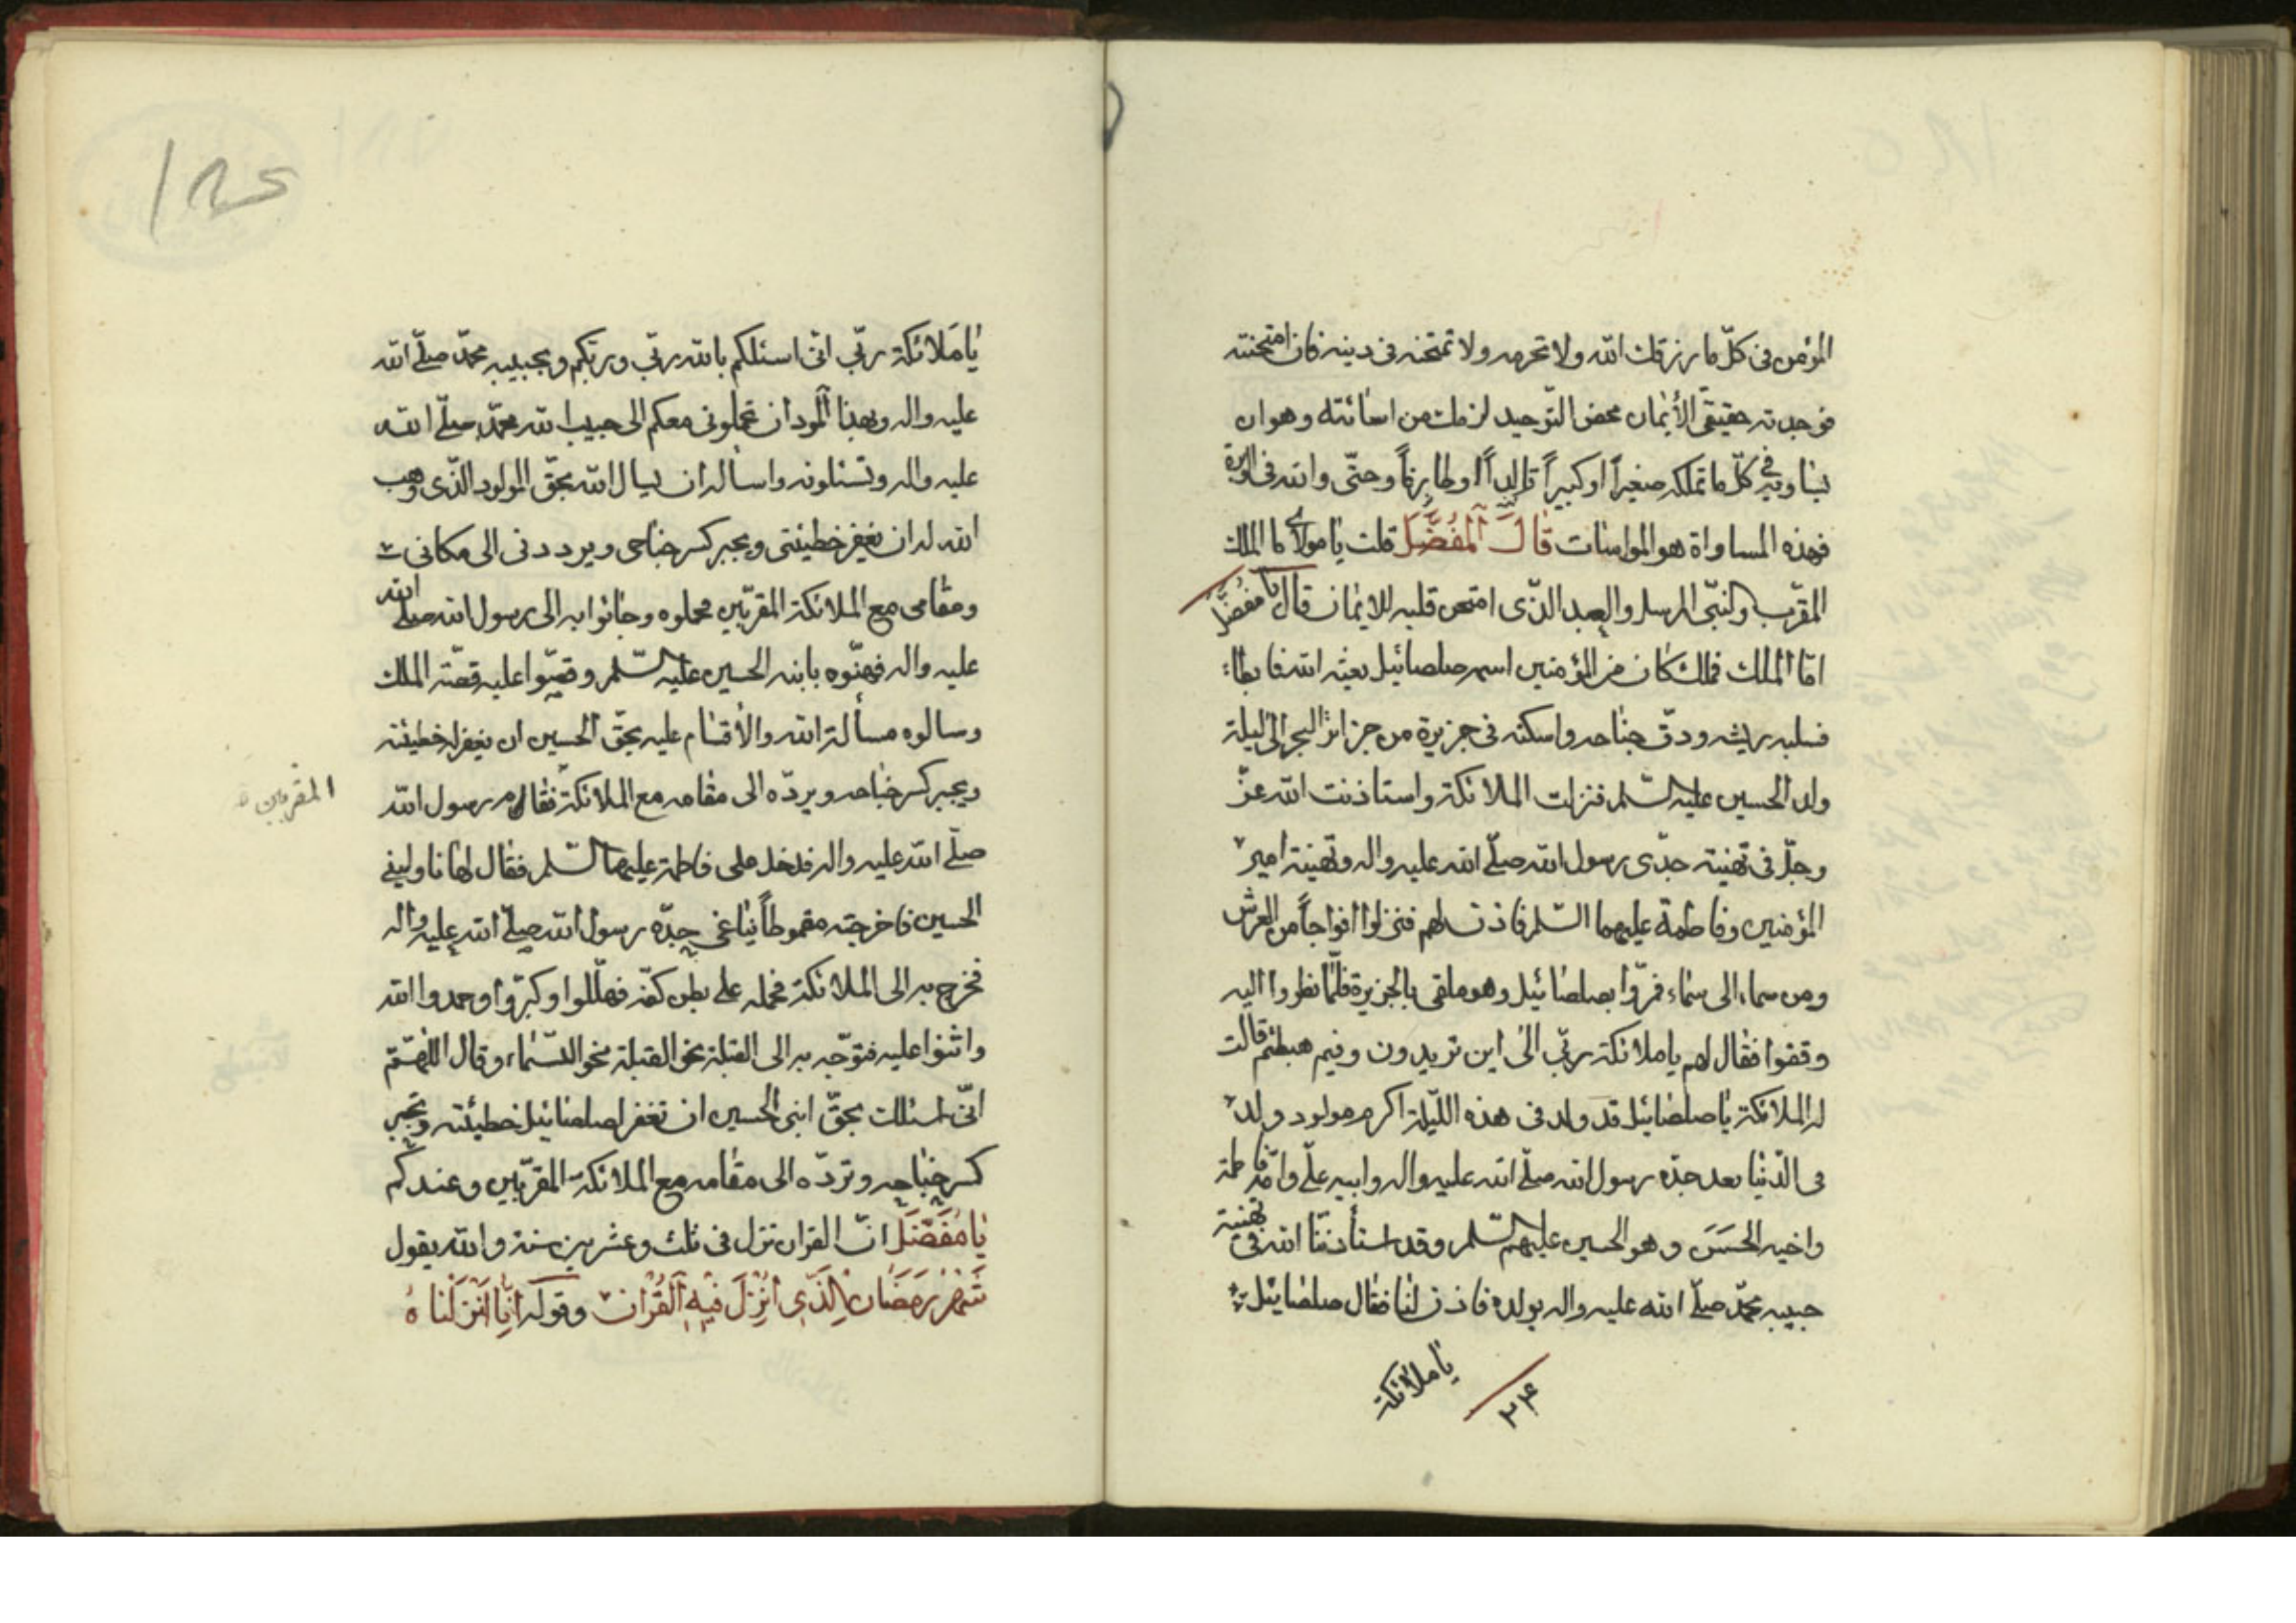 المؤمن فى كلّ ما رزقك الله ولا تحرمه ولا تمتحنه فى دينه فان امتحنته
فوجدته حقيقى الأيمان محض التّوحيد لزمك من اسائته وهو ان
يساويه فى كلّ ما تملكه صغيراً او كبيراً تالداً او طارفاً وحتّى والله فى الابرة
فهذه المساواة هو المواسات قالَ المُفضَّل قلت يا مولاى ما الملك
المقرّب والنبّى المرسل والعبد الذّى امتحن قلبه للايمان قال يا مفضّل
امّا الملك فملك كان من المؤمنين اسمه صلصائيل بعثه الله فابطاء
فسلبه ريشه ودقّ جناحه واسكنه فى جزيرة من جزائر البحر الى ليلة
ولد الحسين عليه السّلم فنزلت الملائكة واستاذنت الله عزّ
وجلّ فى تهنية جدّى رسول الله صلّى الله عليه واله وتهنية امير
المؤمنين وفاطمة عليهما السّلم فاذن لهم فنزلوا افواجاً من العرش
ومن سماء الى سماء فمرّوا بصلصائيل وهو ملقى بالجزيرة فلمّا نظروا اليه
وقفوا فقال لهم يا ملائكة ربّى الى اين تريدون وفيم هبطتم قالت
له الملائكة يا صلصائيل قد ولد فى هذه اللّيلة اكرم مولود ولد
فى الدّنيا بعد جدّه رسول الله صلّى الله عليه واله وابيه علّى وامّه فاطمة
واخيه الحَسَن وهو الحسين عليهم السّلم وقد استأذنّا الله فى تهنية
حبيبه محمّد صلّى الله عليه واله بولده فاذن لنا فقال صلصائيل
يا ملائكة
٢۴
١٨٤
يا مَلائكة ربّى انّى اسئلكم بالله ربّى وربّكم وبحبيبه محمّد صلّى الله
عليه واله وبهذا المولود ان تحملونى معكم الى حبيب الله محمّد صلّى الله
عليه واله وتسئلونه واساله ان يسال الله بحقّ المولود الذّى وهب
الله له ان يغفر خطيئتى ويجبر كسر جناحى ويرددنى الى مكانى
ومقامى مع الملائكة المقرّبين فحملوه وجائوا به الى رسول الله صلى الله
عليه واله فهنّوه بابنه الحسين عليه السّلم وقصّوا عليه قصّة الملك
وسالوه مسألة الله والاقسام عليه بحقّ الحسين ان يغفر له خطيئته
ويجبر كسر جناحه ويردّه الى مقامه مع الملائكة فقام رسول الله
المقربين
صلّى الله عليه واله فدخل على فاطمة عليها السّلم فقال لها ناولينى
الحسين فاخرجته مقموطاً يناغى جدّه رسول الله صلّى الله عليه واله
فخرج به الى الملائكة فحمله على بطن كفّه فهلّلوا وكبّروا وحمدوا الله
واثنوا عليه فتوّجه به الى القبلة نحو القبلة نحو السّماء وقال اللّهمّ
انّى اسئلك بحقّ ابنى الحسين ان تغفر لصلصائيل خطيئته وتجبر
كسر جناحه وتردّه الى مقامه مع الملائكة المقرّبين وعندكم
يا مُفَضّل انّ القران نزل فى ثلث وعشرين سنة والله يقول
شَهْرُ رَمَضَانَ الَّذِى اُنْزِلَ فيهِ القُرْان وقوله انّا انزلناهُ